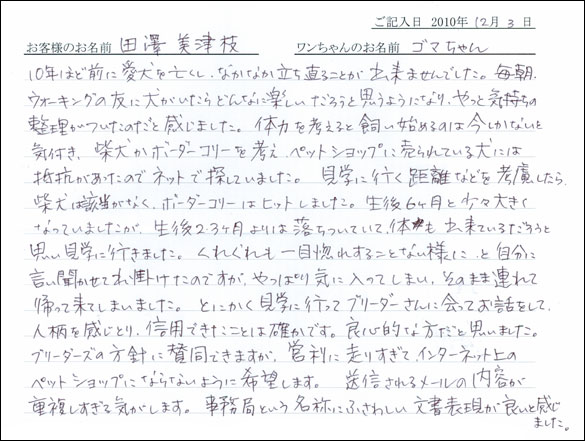 ご記入日 2010年 12月 3日
お客様のお名前 田澤 美津枝 ワンちゃんのお名前 ゴマちゃん
10年ほど前に愛犬を亡くし、なかなか立ち直ることが出来ませんでした。毎朝、
ウォーキングの友に犬がいたらどんなに楽しいだろうと思うようになり、やっと気持ちの
整理がついたのだと感じました。体力を考えると飼い始めるのは今しかないと
気付き、柴犬かボーダーコリーを考え、ペットショップに売られている犬には
抵抗があったのでネットで探していました。見学に行く距離などを考慮したら、
柴犬は該当がなく、ボーダーコリーはヒットしました。生後6ヶ月と少々大きく
なっていましたが、生後2.3ヶ月よりは落ちついていて、体も出来ているだろうと
思い見学に行きました。くれぐれも一目惚れすることない様に、と自分に
言い聞かせて出掛けたのですが、やっぱり気に入ってしまい、そのまま連れて
帰って来てしまいました。とにかく見学に行ってブリーダーさんに会ってお話をして、
人柄を感じとり、信用できたことは確かです。良心的な方だと思いました。
ブリーダーズの方針に賛同できますが、営利に走りすぎてインターネット上の
ペットショップにならないように希望します。 送信されるメールの内容が
重複しすぎる気がします。事務局という名称にふさわしい文書表現が良いと感じ
ました。